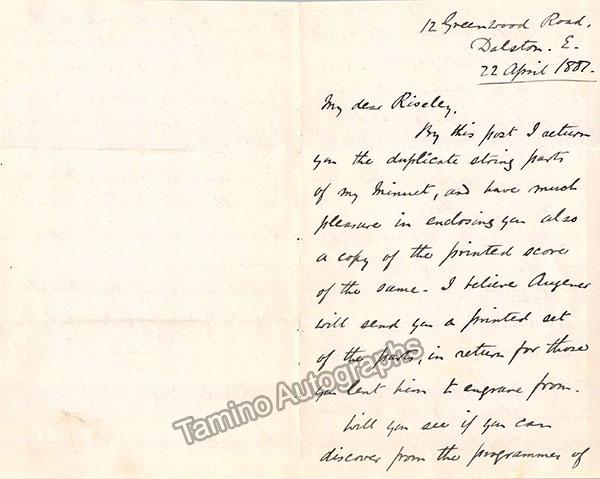 12 Greenwood Road,
Dalston. E.
22 April 1881.
My dear Riseley,
By this post I return
you the duplicate string parts
of my Minuet, and have much
pleasure in enclosing you also
a copy of the printed score
of the same - I believe Augener
will send you a printed set
of the parts, in return for those
you lent him to engrave from.
Will you see if you can
discover from the programmes of
Tamino Autographs